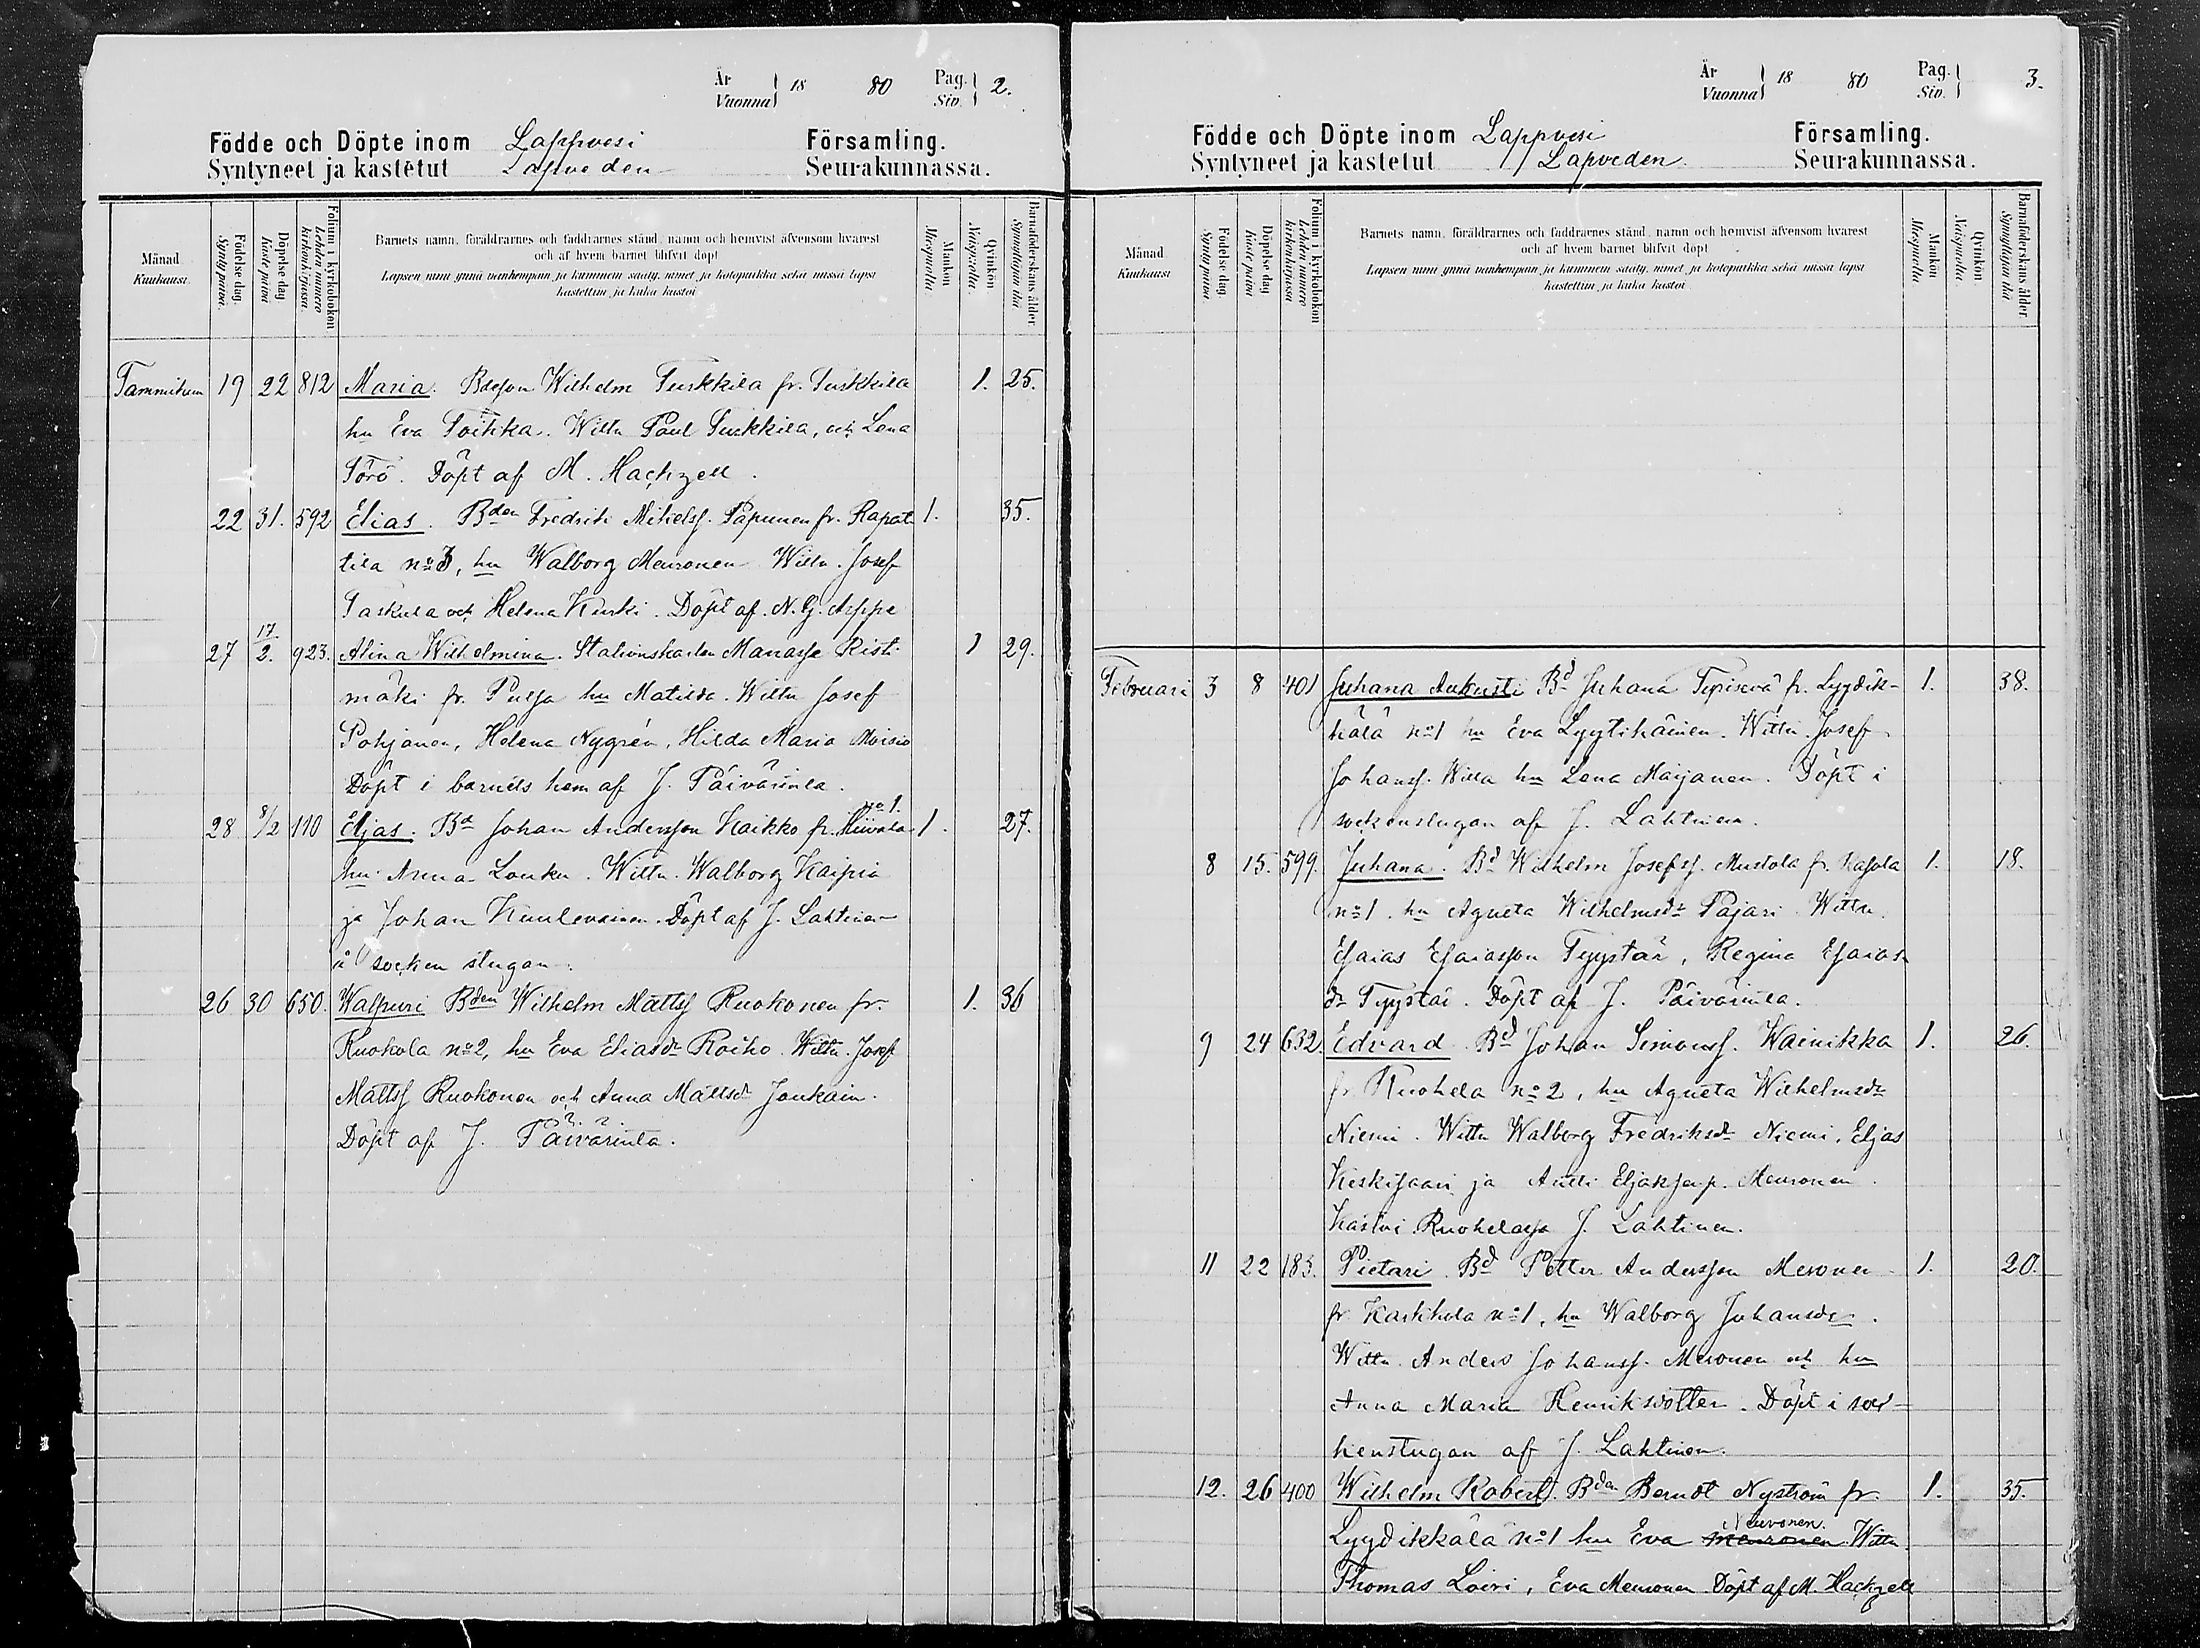 År Vuonna 18 80 Pag. Siv. 2.
Födde och Döpte inom Lappvesi Församling.
Syntyneet ja kastetut Lapveden Seurakunnassa.
Månad Kuukausi
Födelse dag Synty päivä
Döpelse dag Kaste päivä
Folium i kyrkoboken Lehden numero kirkonkirjassa
Barnets namn, föräldrarnes och faddrarnes stånd, namn och hemvist äfvensom hvarest
och af hvem barnet blifvit döpt
Lapsen nimi ynnä vanhempain ja kummein sääty, nimet ja kotopaikka sekä missä lapsi
kastettiin ja kuka kastoi
Mankön Miespuolta
Qvinkön Naispuolta
Barnaföderskans ålder Synnyttäjän ikä
Tammikuu 19 22 812 Maria. Bdesson Wilhelm Turkkila fr. Turkkila 1. 25.
hu Eva Toikka. Wittn Paul Turkkila, och Lena
Törö. Döpt af M. Hackzell.
22 31. 592 Elias. Bden Fredrik Mikelss. Papunen fr. Rapat- 1. 35.
tila no 3, hu Walborg Meuronen Wittn. Josef
Taskula och Helena Kurki. Döpt af N. G. Arppe
27 17/2. 923. Alina Wilhelmina. Stationskarlen Manasse Risti- 1 29.
mäki fr. Pulsa hu Matilda. Wittn Josef
Pohjonen, Helena Nygrén, Hilda Maria Moisio
Döpt i barnets hem af J. Päivärinta.
no 1.
28 8/2 110 Eljas. Bd Johan Andersson Kaikko fr. Hiivala 1. 27.
hu Anna Louku. Wittn. Walborg Kaipia
ja Johan Kuulevainen. Döpt af J. Lahtinen
i socken stugan.
26 30 650. Walpuri Bden Wilhelm Mattss Ruokonen fr. 1. 36
Ruokola no 2, hu Eva Eliasdr Roiho. Wittn. Josef
Mattss Ruokonen och Anna Mattsdr Joukain.
Döpt af J. Päivärinta.
År Vuonna 18 80 Pag. Siv. 3.
Födde och Döpte inom Lappvesi Församling.
Syntyneet ja kastetut Lapveden Seurakunnassa.
Månad Kuukausi
Födelse dag Synty päivä
Döpelse dag Kaste päivä
Folium i kyrkoboken Lehden numero kirkonkirjassa
Barnets namn, föräldrarnes och faddrarnes stånd, namn och hemvist äfvensom hvarest
och af hvem barnet blifvit döpt
Lapsen nimi ynnä vanhempain ja kummein sääty, nimet ja kotopaikka sekä missä lapsi
kastettiin ja kuka kastoi
Mankön Miespuolta
Qvinkön Naispuolta
Barnaföderskans ålder Synnyttäjän ikä
Februari 3 8 401 Juhana Aukusti Bd Juhana fr. Lyydik- 1. 38.
kälä no 1 hu Eva Lyytikäinen. Wittn. Josef
Johanss. Willa hu Lena Maijanen. Döpt i
sockenstugan af J. Lahtinen.
8 15. 599. Juhana. Bd Wilhelm Josefss. Mustola fr. Kasola 1. 18.
no 1. hu Agneta Wilhelmsdr Pajari. Wittn.
Esaias Esaiasson Tyystär, Regina Esaias-
dr Tyystär. Döpt af J. Päivärinta.
9 24 632. Edvard Bd Johan Simonss. Wainikka 1. 26.
fr. Ruohola no 2, hu Agneta Wilhelmsdr
Niemi. Wittn Walborg Fredriksdr Niemi, Eljas
Keskisaari ja Antti Eljaksenp. Meuronen.
Kastoi Ruoholassa J. Lahtinen.
11 22 183. Pietari. Bd Petter Andersson Meronen 1. 20.
fr. Karhkola no 1, hu Walborg Johansdr.
Wittn. Anders Johanss. Meronen och hu
Anna Maria Henriksdotter. Döpt i soc-
kenstugan af J. Lahtinen.
12. 26 400 Wilhelm Robert. Bden Berndt Nyström fr. 1. 35.
Neuvonen.
Lyydikkälä no 1 hu Eva Meuronen. Wittn.
Thomas Loiri, Eva Meuronen Döpt af M. Hackzell